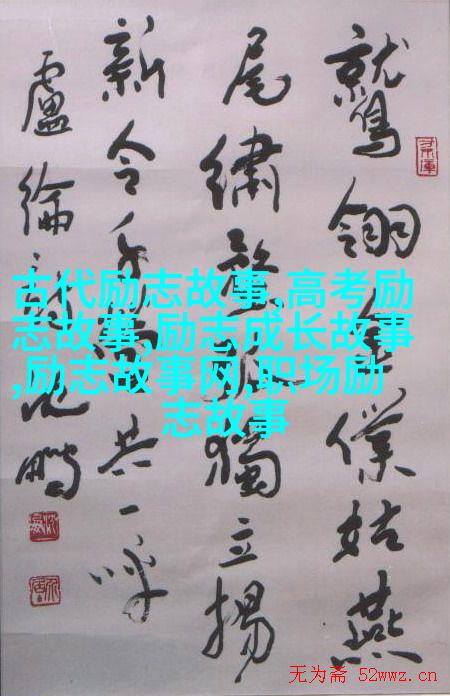 鷲翎金僕姑燕
尾繡蝥弧獨立揚
新令千營共一呼
盧綸詩沈鵬
古代励志故事,高考励
志故事,励志成长故事
,励志故事网,职场励
志故事
无为斋 52wwz.cn